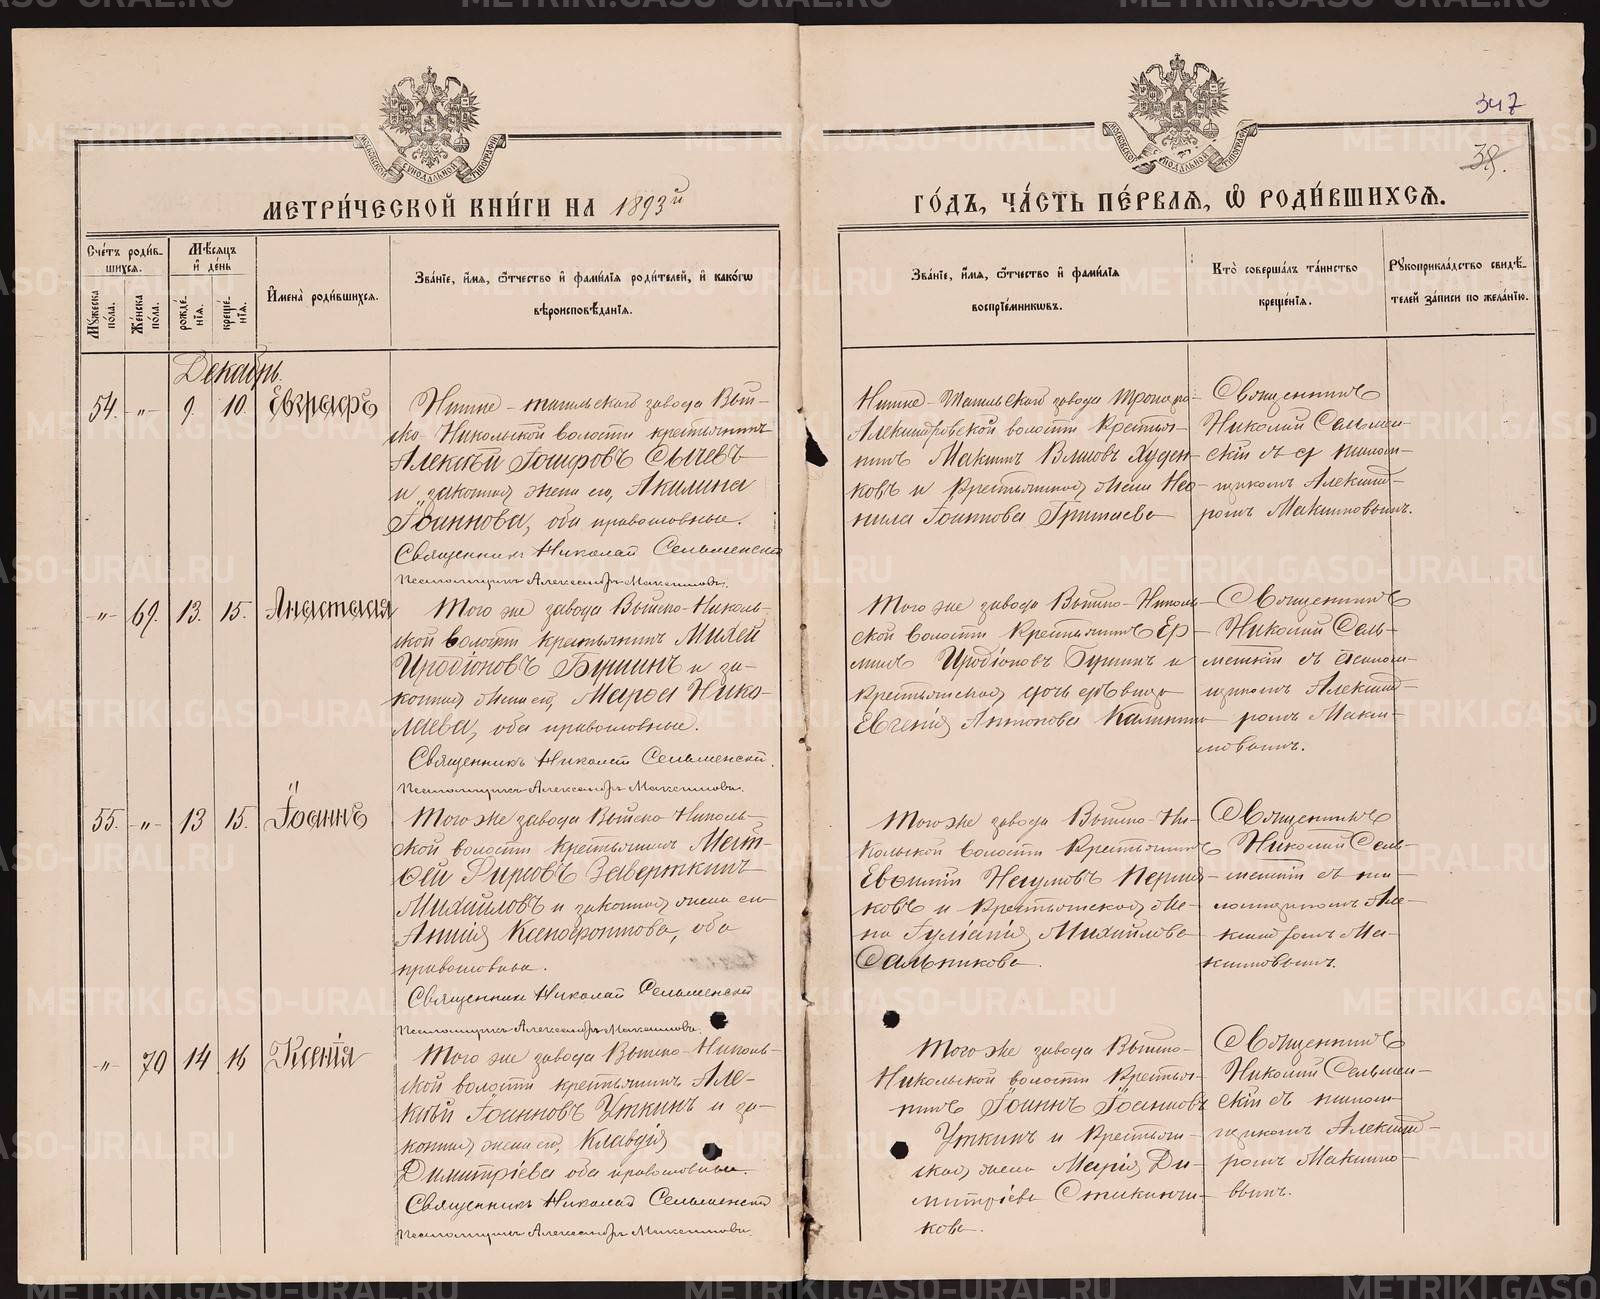 347
38.
МЕТРИ́ЧЕСКОЙ КНИ́ГИ НА 1893й
ГО́ДЪ, ЧА́СТЬ ПЕ́РВАѦ, Ѡ҆ РОДИ́ВШИХСѦ.
Сче́тъ роди́вшихся.
Мꙋжеска по́ла.
Же́нска по́ла.
Мѣ́сяцъ и҆ де́нь
рожде́нїѧ.
креще́нїѧ.
И҆мена̀ роди́вшихся.
Зва́нїе, и҆́мѧ, ѻ҆́тчество и҆ фами́лїѧ роди́телей, и҆ како́гѡ
вѣроисповѣ́данїѧ.
Зва́нїе, и҆́мѧ, ѻ҆́тчество и҆ фами́лїѧ
воспрїе́мниковъ.
Кто̀ соверша́лъ та́инство
креще́нїѧ.
Рꙋкоприкла́дство свидѣ́-
телей за́писи по жела́нїю.
Декабрь.
54. -„- 9. 10. Евграфъ
Нижне-тагильскаго завода Вый-
ско-Никольской волости крестьянинъ
Алексѣй Іосифовъ Сычевъ
и законная жена его, Акилина
Іоаннова, оба православные.
Священникъ Николай Сельменскій
Псаломщикъ Александръ Макшиновъ.
Нижне-Тагильскаго завода Троицко-
Александровской волости Крестья-
нинъ Максимъ Худен-
ковъ и Крестьянская жена Нео-
нила Іоаннова
Священникъ
Николай Сельмен-
скій съ псалом-
щикомъ Александ-
ромъ Макшиновымъ.
-„- 69. 13. 15. Анастасія
Того же завода Выйско-Николь-
ской волости крестьянинъ Михей
Иродіоновъ Бушинъ и за-
конная жена его, Марѳа Нико-
лаева, оба православные.
Священникъ Николай Сельменскій.
Псаломщикъ Александръ Макшиновъ.
Того же завода Выйско-Николь-
ской волости Крестьянинъ Ер-
милъ Иродіоновъ Бушинъ и
Крестьянская дочь дѣвица
Евгенія Антонова
Священникъ
Николай Сель-
менскій съ псалом-
щикомъ Александ-
ромъ Макши-
новымъ.
55. -„- 13 15. Іоаннъ
Того же завода Выйско-Николь-
ской волости крестьянинъ Мат-
ѳей Фирсовъ Заверткинъ
Михайловъ и законная жена его
Анна Ксенофонтова, оба
православные.
Священникъ Николай Сельменскій
Псаломщикъ Александръ Макшиновъ.
Того же завода Выйско-Ни-
кольской волости Крестьянинъ
ковъ и Крестьянская же-
на Іуліанія Михайлова
Сальникова.
Священникъ
Николай Сель-
менскій съ пса-
ломщикомъ Але-
ксандромъ Мак-
шиновымъ.
-„- 70 14 16 Ксенія
Того же завода Выйско-Николь-
ской волости крестьянинъ Але-
ксѣй Іоанновъ Уткинъ и за-
конная жена его, Клавдія
Димитріева оба православные.
Священникъ Николай Сельменскій
Псаломщикъ Александръ Макшиновъ.
Того же завода Выйско-
Никольской волости Крестья-
нинъ Іоаннъ Іоанновъ
Уткинъ и Крестьян-
ская жена Марія Ди-
митріева
кова.
Священникъ
Николай Сельмен-
скій съ псалом-
щикомъ Александ-
ромъ Макшино-
вымъ.